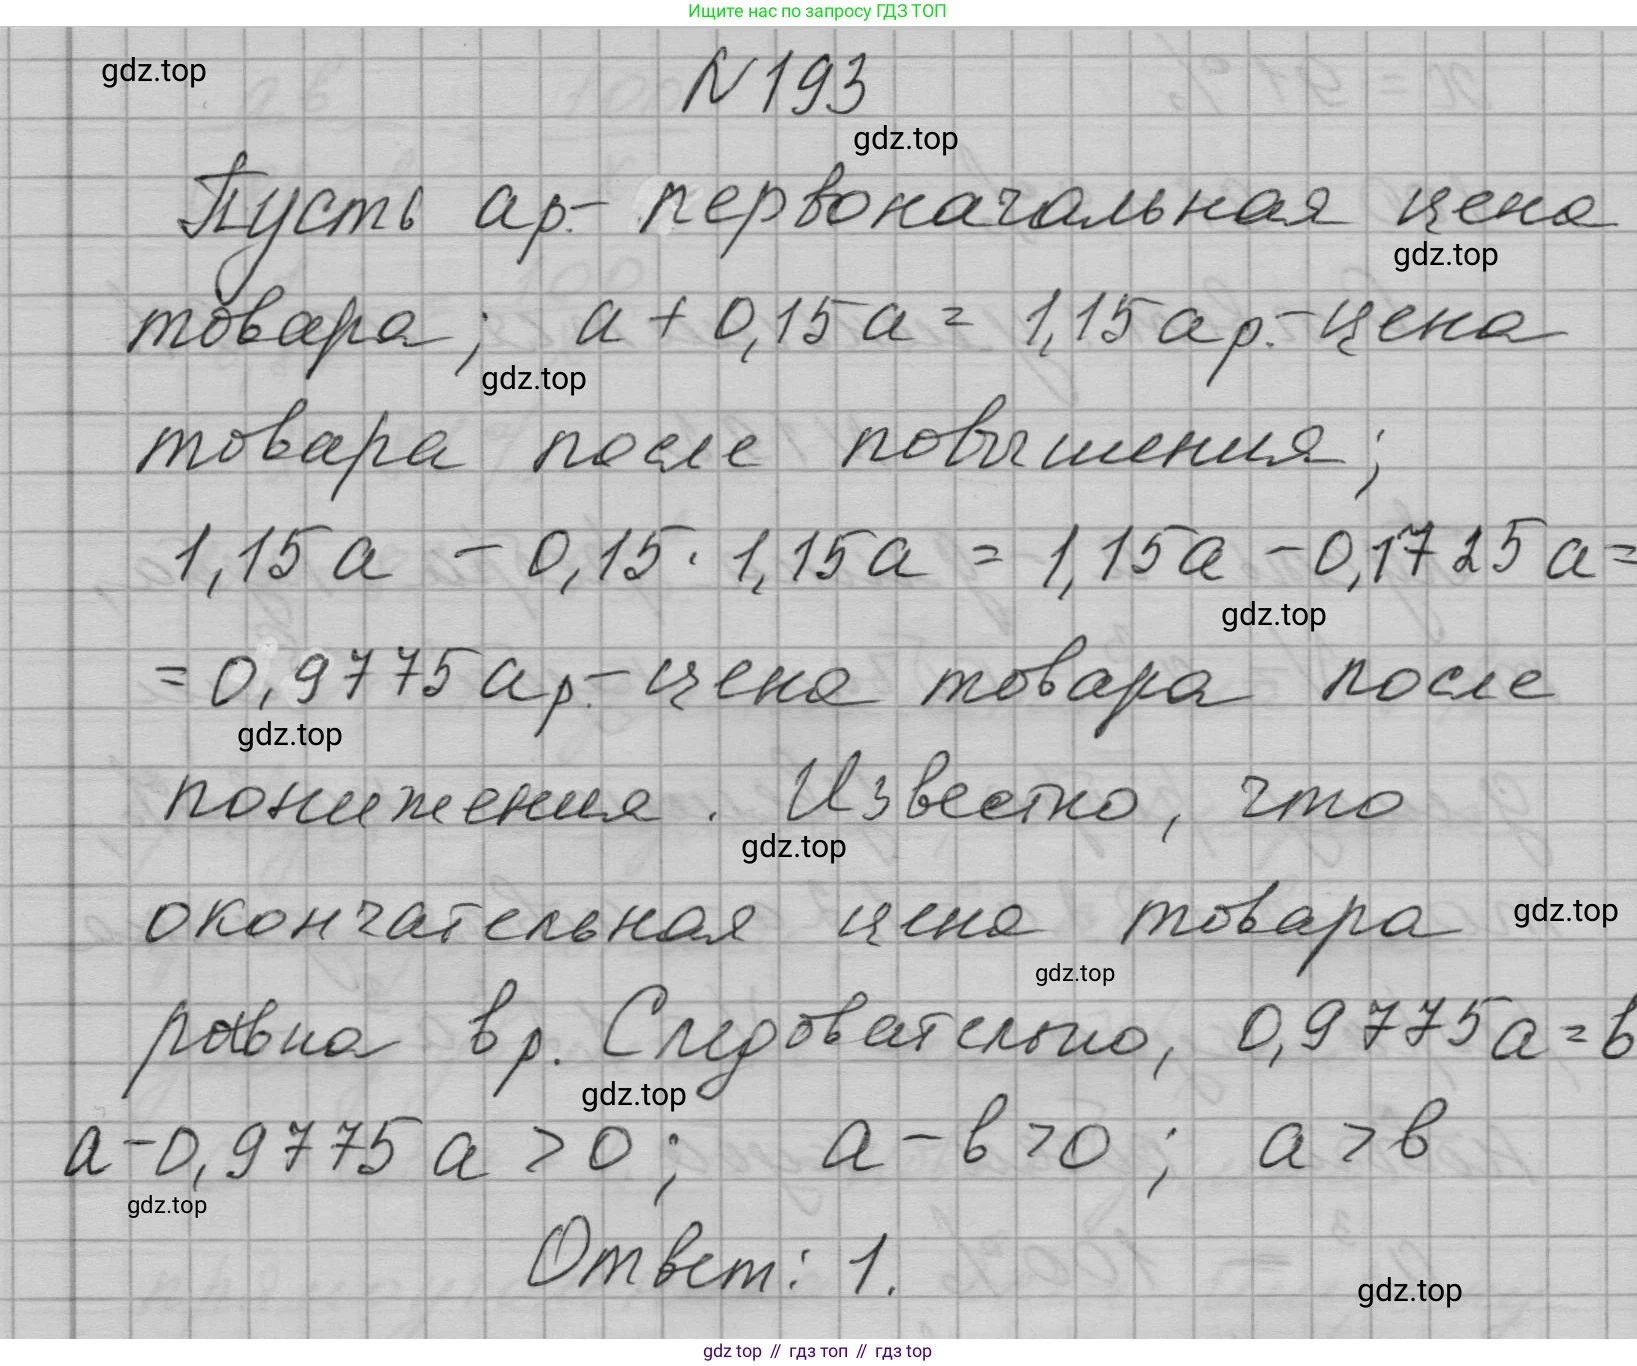 Ищите нас по запросу ГДЗ ТОП
gdz.top
N 193
gdz.top
Пусть ар.- первоначальная цена
gdz.top
товара; а + 0,15а = 1,15ар.- цена
gdz.top
товара после повышения;
1,15а - 0,15 · 1,15а = 1,15а - 0,1725а =
gdz.top
= 0,9775ар.- цена товара после
gdz.top
понижения. Известно, что
gdz.top
окончательная цена товара
gdz.top
gdz.top
равна вр. Следовательно, 0,9775а = в
gdz.top
а - 0,9775а > 0; а - в > 0; а > в
gdz.top
Ответ: 1.
gdz.top
gdz top // гдз топ // гдз top